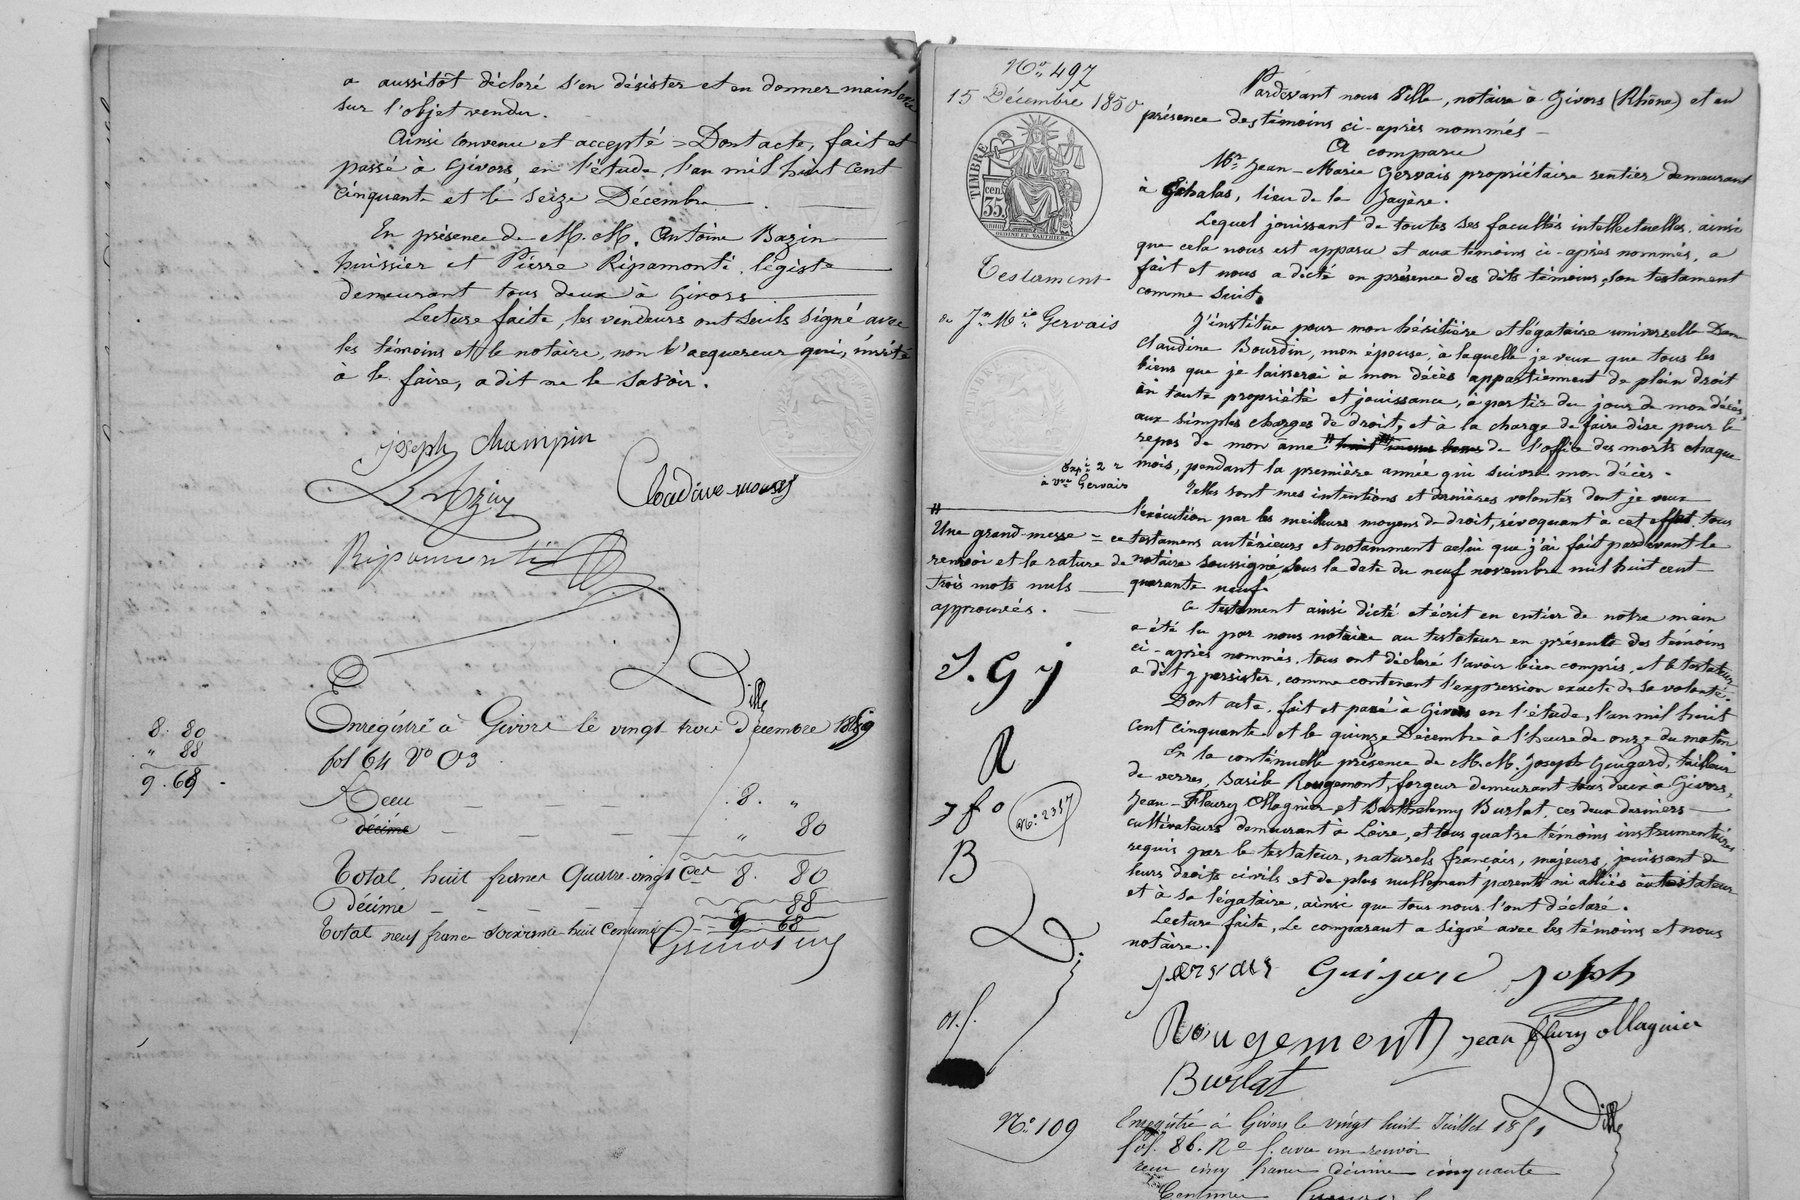 a aussitôt déclaré s'en désister et en donner mainlevée
sur l'objet vendu.
Ainsi convenu et accepté = Dont acte, fait et
passé à Givors, en l'étude, l'an mil huit cent
cinquante et le seize Décembre
En présence de M. M. Antoine Bazin
huissier et Pierre Ripamonti, légiste
demeurant tous deux à Givors
Lecture faite, les vendeurs ont seuls signé avec
les témoins et le notaire, non l'acquereur qui, invité
à le faire, a dit ne le savoir.
joseph champin
Bazin
Claudine
Ripamonti
Dille
Enregistré à Givors le vingt trois Décembre
fol 64 Vo C3
8. 80
" 88
9. 68
Recu 8. "
décime " 80
Total, huit francs Quatre-vingt Ces 8. 80
Décime 88
Total neuf francs soixante-huit Centimes 9 68
No. 497
15 Décembre 1850
TIMBRE
cen
35
Testament
de Jn Mie Gervais
Expé 2 r
à Vve Gervais
#
Une grand-messe = ce
renvoi et la rature de
trois mots nuls
approuvés.
J. G j
R
j f o
No. 2357
B
D
No. 109
Pardevant nous Dille, notaire à Givors (Rhône) et en
présence des témoins ci-après nommés
A comparu
Mr. Jean-Marie Gervais propriétaire rentier demeurant
à Echalas, lieu de la Bayère.
Lequel jouissant de toutes ses facultés intellectuelles, ainsi
que cela nous est apparu et aux témoins ci-après nommés, a
fait et nous a dicté en présence des dits témoins, son testament
comme suit.
J'institue pour mon héritière et légataire universelle Dame
Claudine Bourdin, mon épouse, à laquelle je veux que tous les
biens que je laisserai à mon décès appartiennent de plein droit
en toute propriété et jouissance, à partir du jour de mon décès,
aux simples charges de droit, et à la charge de faire dire pour le
repos de mon âme # de l'office des morts chaque
mois, pendant la première année qui suivra mon décès.
Telles sont mes intentions et dernières volontés dont je veux
l'exécution par les meilleurs moyens de droit, révoquant à cet effet, tous
testamens antérieurs et notamment celui que j'ai fait pardevant le
notaire soussigné, sous la date du neuf novembre mil huit cent
quarante neuf.
Ce testament ainsi dicté et écrit en entier de notre main
a été lu par nous notaire au testateur en présence des témoins
ci-après nommés, tous ont déclaré l'avoir bien compris, et le testateur
a dit y persister, comme contenant l'expression exacte de sa volonté.
Dont acte, fait et passé à Givors en l'étude, l'an mil huit
cent cinquante et le quinze Décembre à l'heure de onze du matin
En la continuelle présence de M. M. Joseph Guigard, tailleur
de verres, Basile Rougemont, forgeur demeurant tous deux à Givors,
Jean-Fleury Ollagnier et Barthelemy Burlat, ces deux derniers
cultivateurs demeurant à Loire, et tous quatre témoins instrumentaires
requis par le testateur, naturels français, majeurs, jouissant de
leurs droits civils et de plus nullement parents ni alliés au testateur
et à sa légataire, ainsi que tous nous l'ont déclaré.
Lecture faite, Le comparant a signé avec les témoins et nous
notaire.
jervais Guigard joseph
Rougemont jean fleury ollagnier
Burlat
Dille
Enregistré à Givors le vingt huit Juillet 1851
fol. 86. Ro f. avec un renvoi
recu cinq francs décime cinquante
Centimes